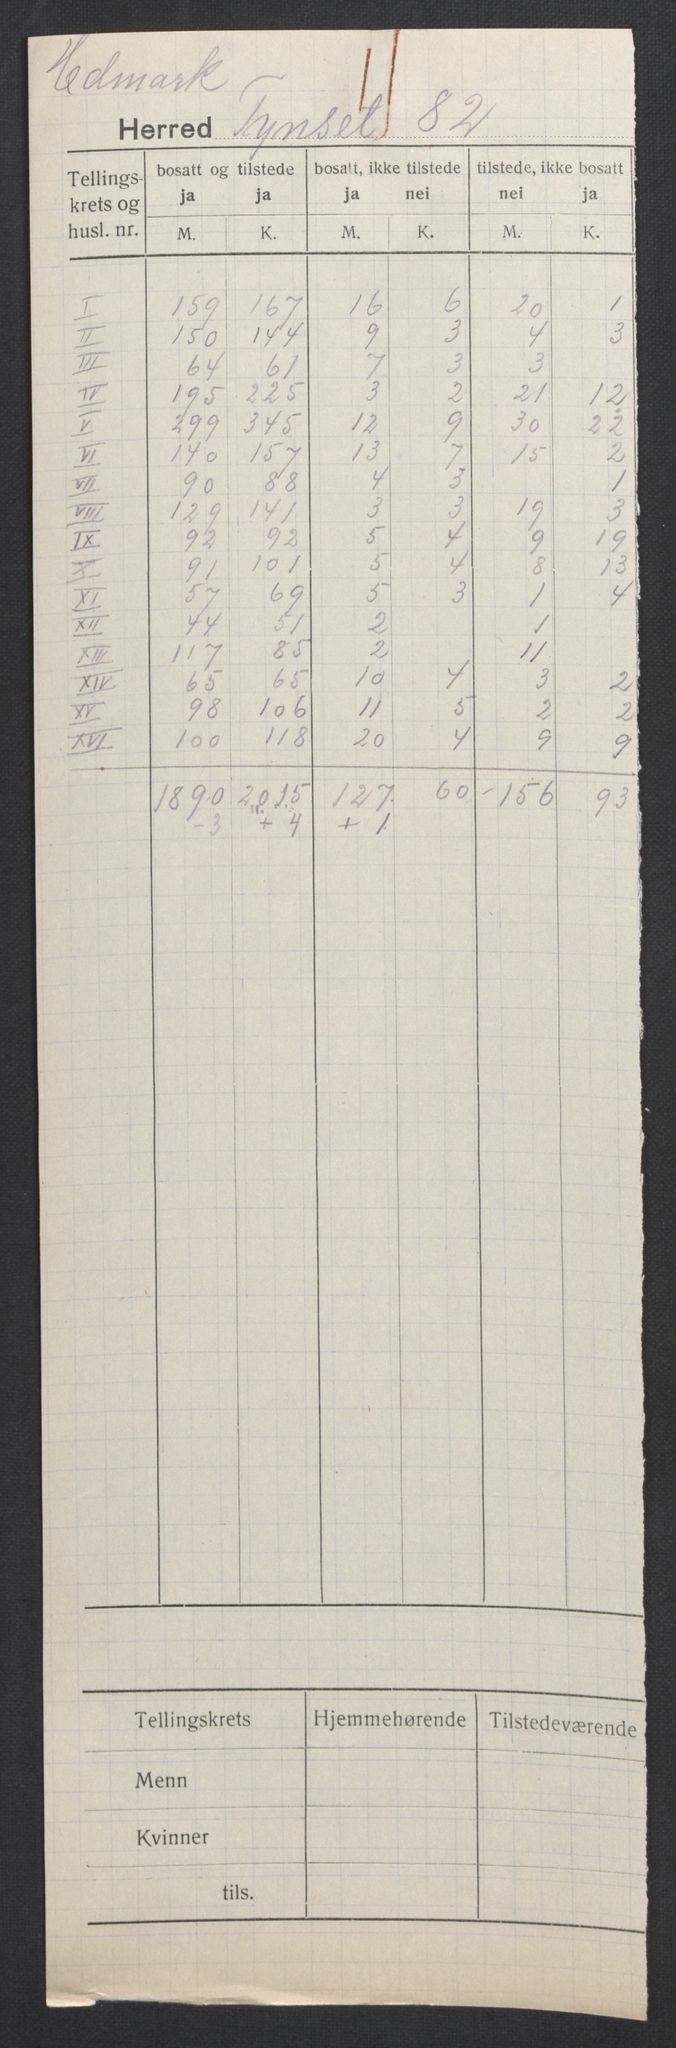 Hedmark
Herred Tynset 82
Tellingskrets og husl. nr. bosatt og tilstede bosatt, ikke tilstede tilstede, ikke bosatt
ja ja ja nei nei ja
M. K. M. K. M. K.
I 159 167 16 6 20 1
II 150 144 9 3 4 3
III 64 61 7 3 3
IV 195 225 3 2 21 12
V 299 345 12 9 30 22
VI 140 157 13 7 15 2
VII 90 88 4 3 1
VIII 129 141 3 3 19 3
IX 92 92 5 4 9 19
X 91 101 5 4 8 13
XI 57 69 5 3 1 4
XII 44 51 2 1
XIII 117 85 2 11
XIV 65 65 10 4 3 2
XV 98 106 11 5 2 2
XVI 100 118 20 4 9 9
1890 2015 127 60 - 156 93
-3 + 4 + 1
Tellingskrets Hjemmehørende Tilstedeværende
Menn
Kvinner
tils.